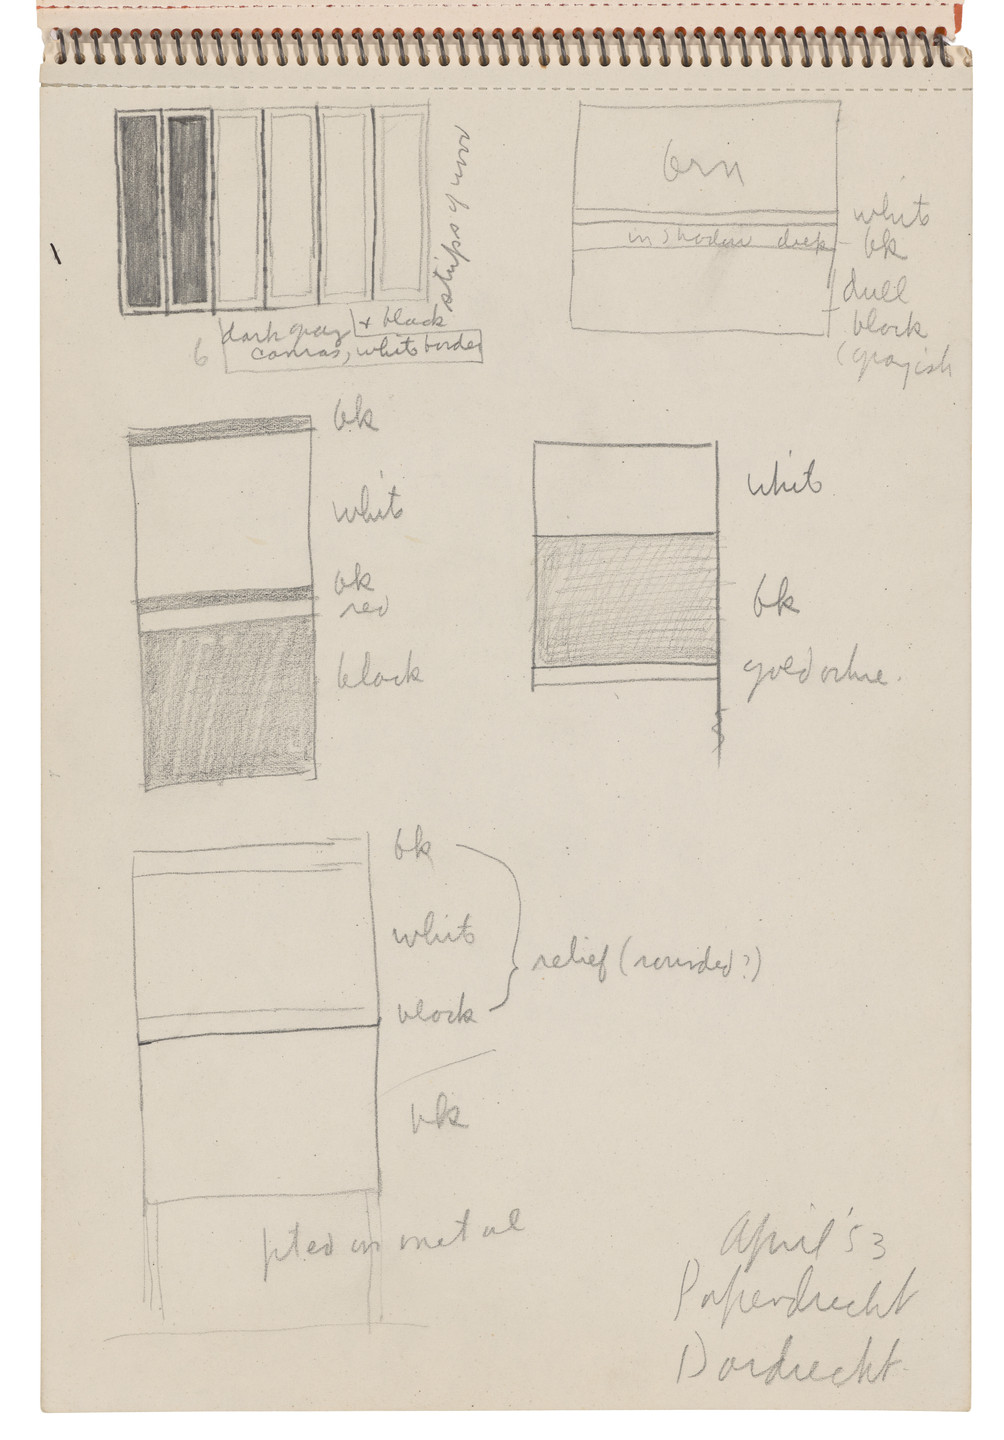 strips of wood
dark gray + black
6 canvas, white border
brn
white
in shadow dark - bk
dull
black
(grayish
bk
white
bk
red
black
white
bk
gold ochre.
bk
white
black
relief (rounded?)
bk
pted on metal
April '53
Papendrecht
Dordrecht